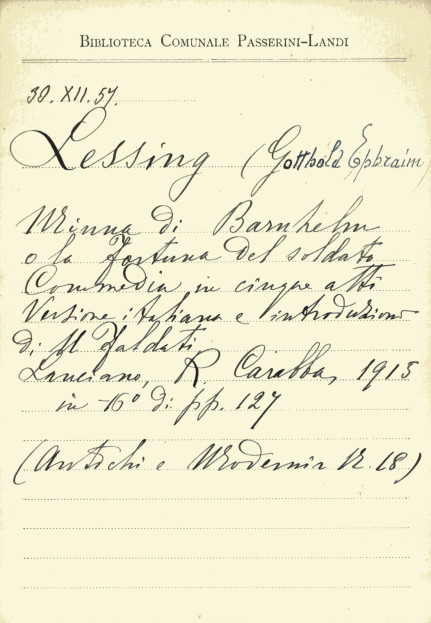 BIBLIOTECA COMUNALE PASSERINI-LANDI
30.XII.57.
Lessing (Gotthold Ephraim)
Minna di Barnhelm
o la Fortuna del soldato
Commedia in cinque atti
Versione italiana e introduzione
di M Faldati
Lanciano, R. Carabba, 1915
in -16° di pp. 127
(Antichi e Moderni N. 18)